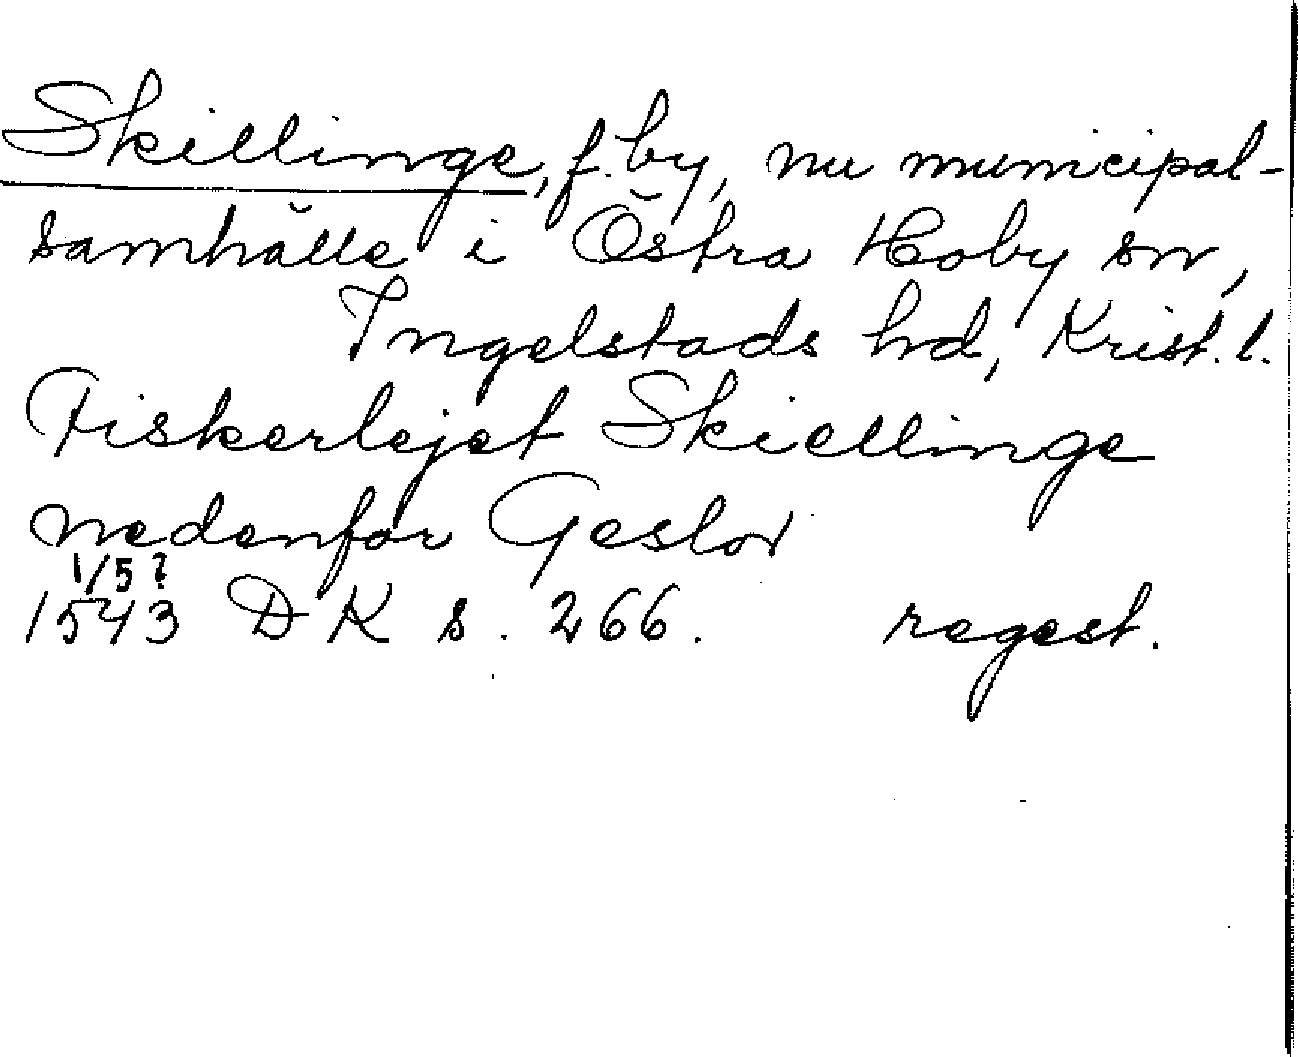 Skillinge, f. by, nu municipal-
samhälle i Östra Hoby sn,
Ingelstads hd, Krist. l.
Fiskerlejet Skiellinge
nedenfor Geslov
1/5?
1543 DK s. 266. regest.